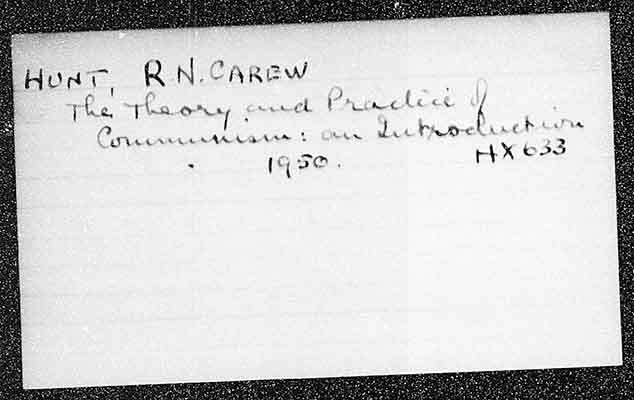 HUNT, R N. CAREW
The Theory and Practice of
Communism: an Introduction
1950. HX633